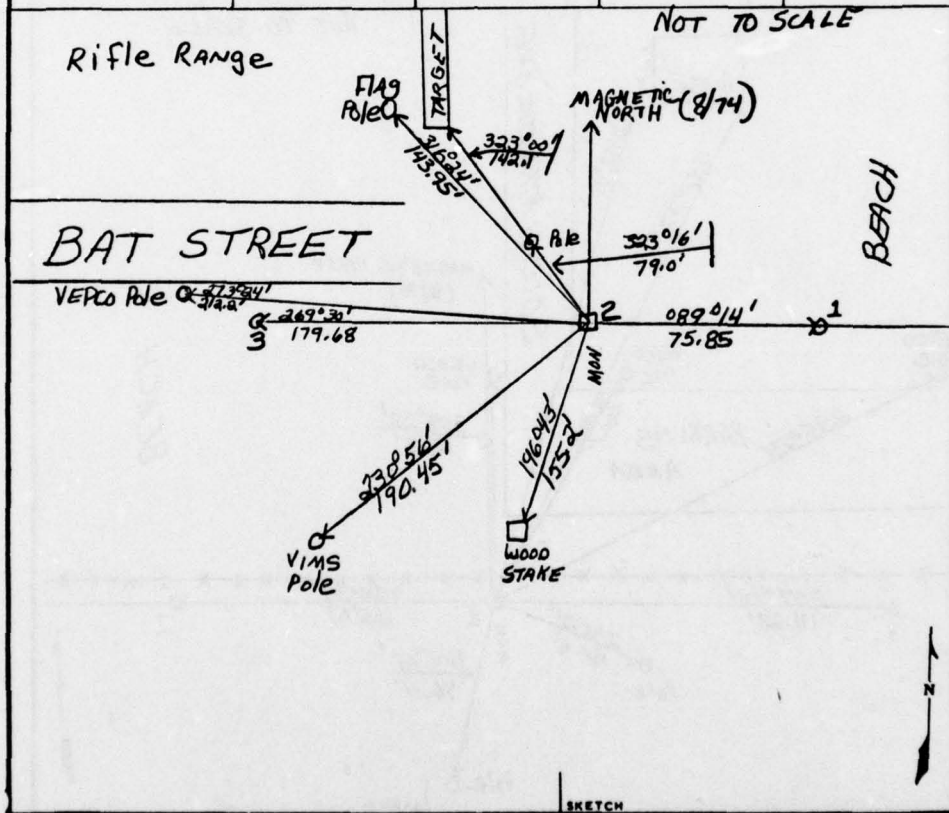 NOT TO SCALE
Rifle Range
FlAg
Pole
TARGET
MAGNETIC
NORTH (8/74)
323°00'
142.1
316°24'
143.95'
BEACH
BAT STREET
Pole
323°16'
79.0'
VEPCO Pole
273°24'
212.2'
269°30'
179.68
3
2
089°14'
75.85
1
MON
196°43'
155.2'
230°56'
190.45'
VIMS
Pole
WOOD
STAKE
N
SKETCH